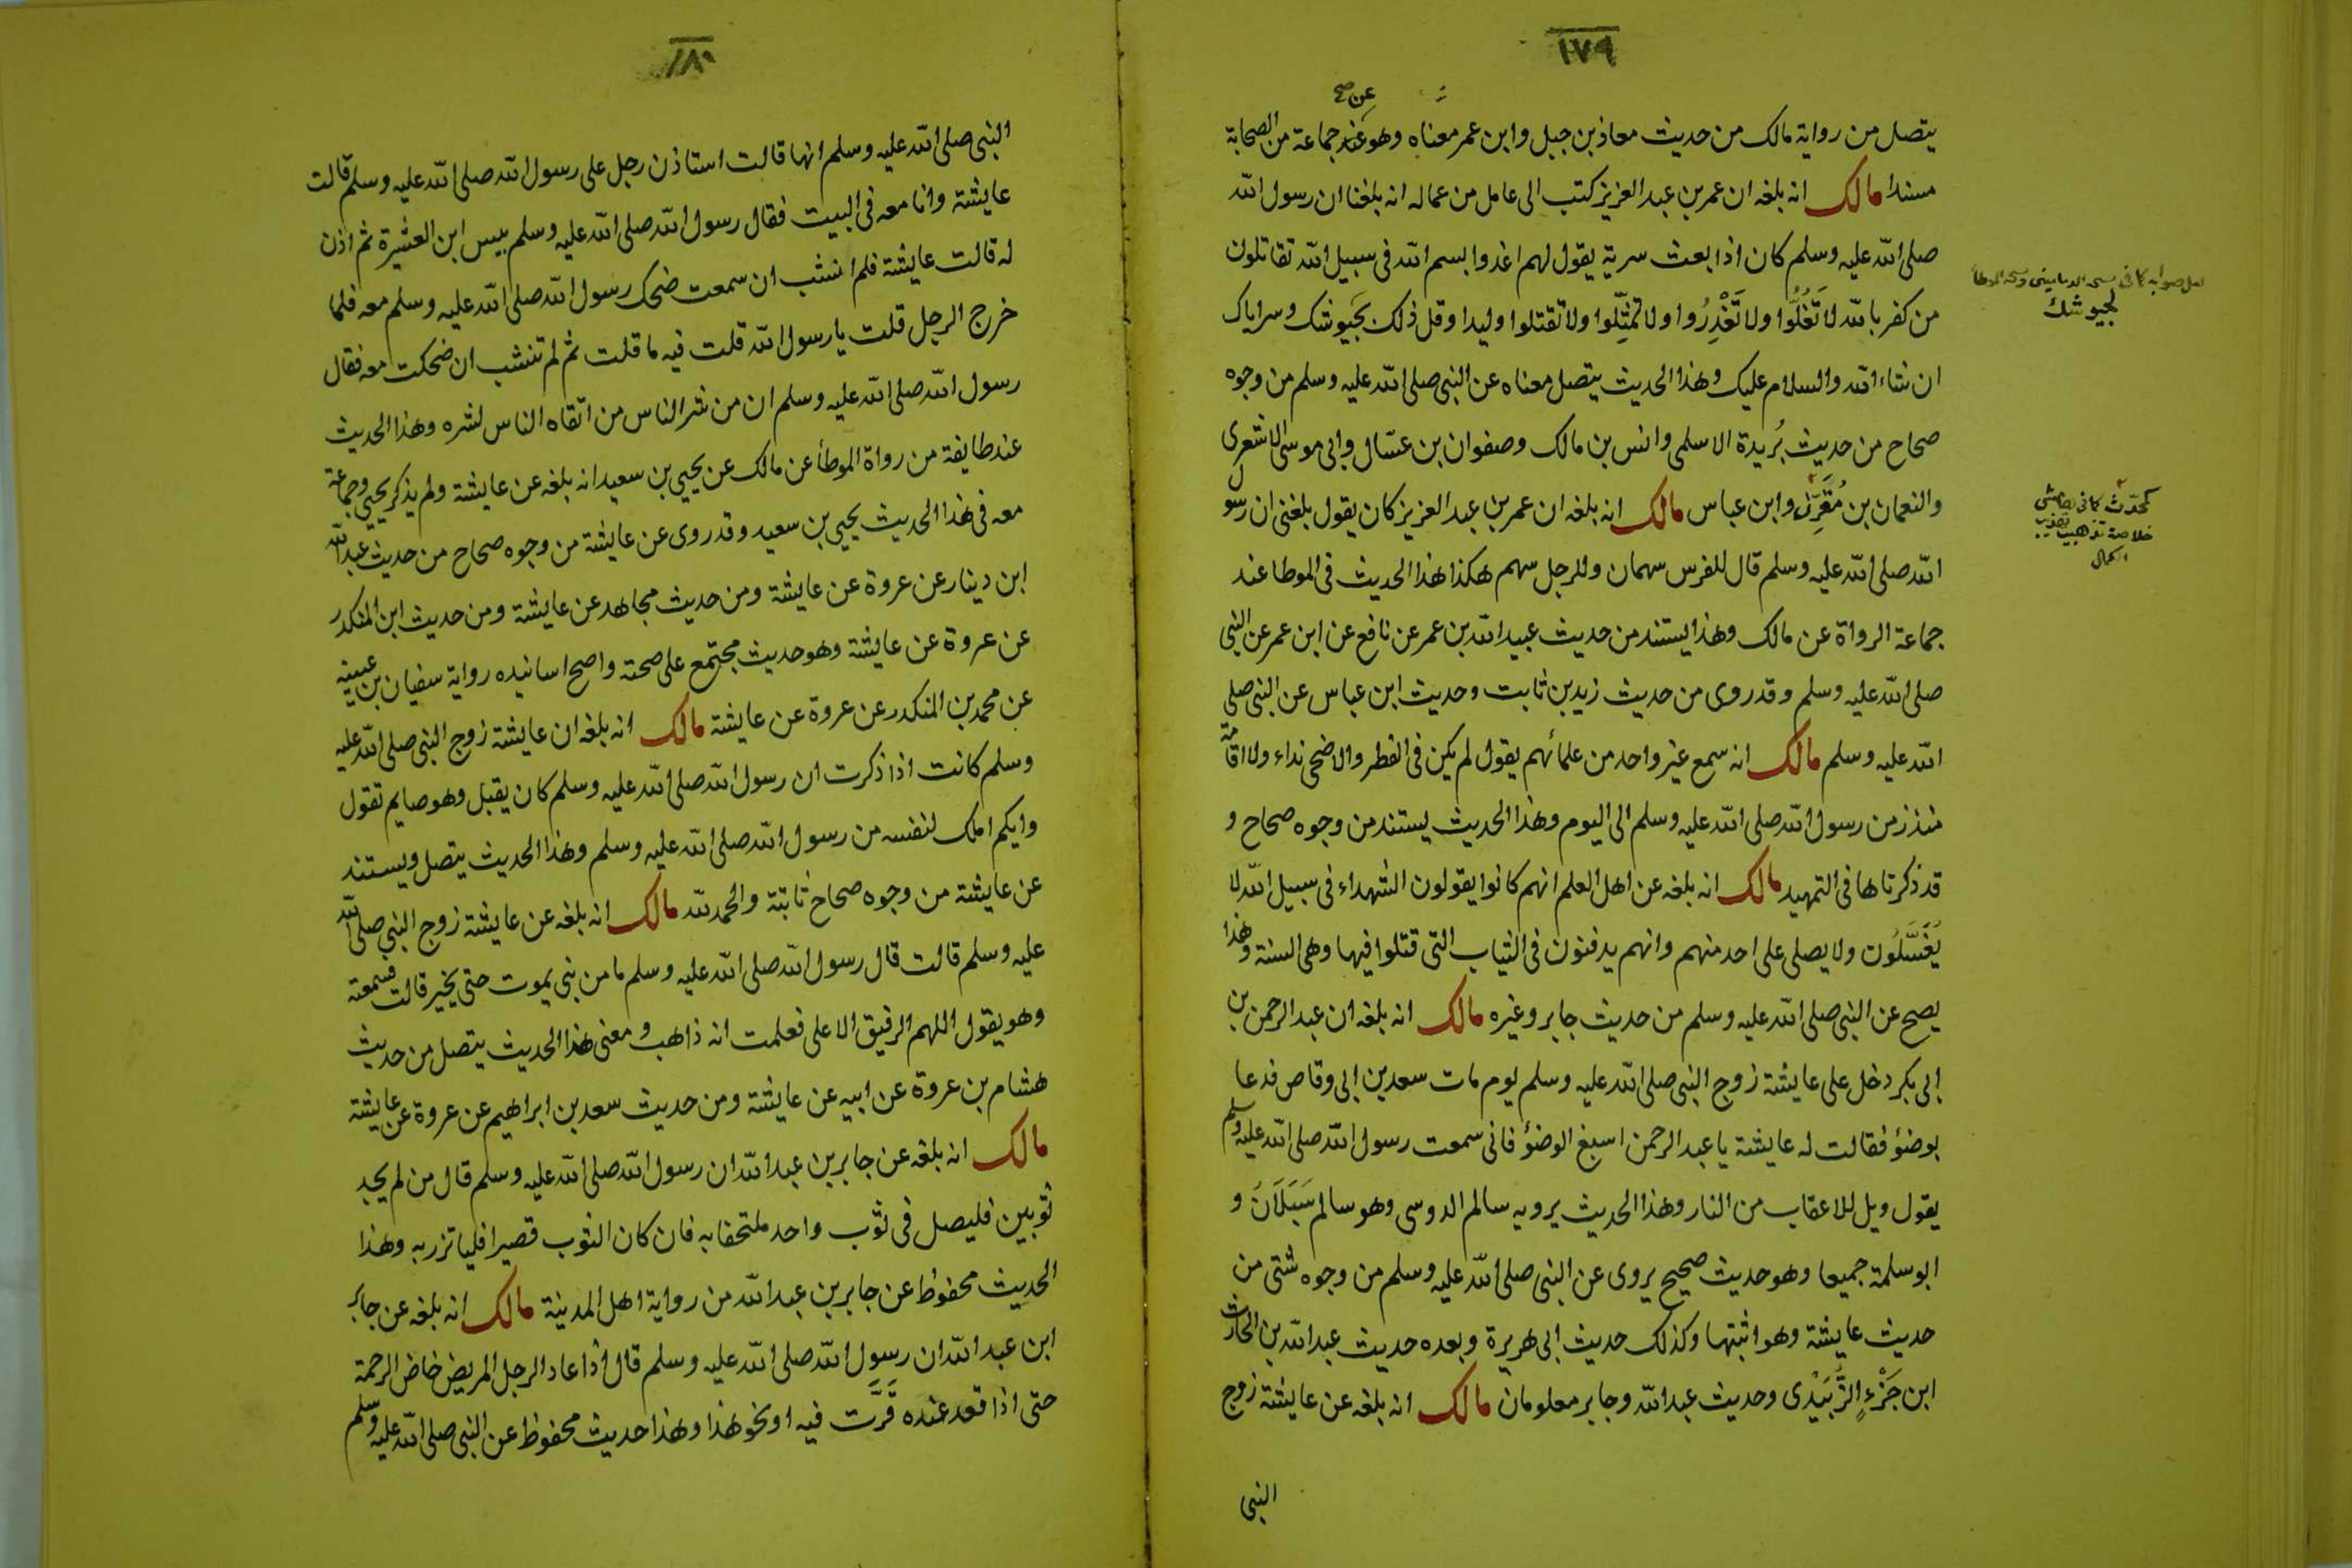 ١٧٩
عن صح
يتصل من رواية مالك من حديث معاذ بن جبل وابن عمر معناه وهو عند جماعة من الصحابة
مسندا مالك انه بلغه ان عمر بن عبد العزيز كتب الى عامل من عماله انه بلغنا ان رسول الله
صلى الله عليه وسلم كان اذا بعث سرية يقول لهم اغدوا بسم الله فى سبيل الله تقاتلون
من كفر بالله لا تَغُلُّوا ولا تَغْدِرُوا ولا تمثِّلوا ولا تقتلوا وليدا وقل ذلك بجَيوشك وسراياك
ان شاء الله والسلام عليك وهذا الحديث يتصل معناه عن النبى صلى الله عليه وسلم من وجوه
صحاح من حديث بُريدة الاسلمى وانس بن مالك وصفوان بن عسّال وابى موسى الاشعرى
والنعمان بن مُقَرِّن وابن عباس مالك انه بلغه ان عمر بن عبد العزيز كان يقول بلغنى ان رسول
الله صلى الله عليه وسلم قال للفرس سهمان وللرجل سهم هكذا هذا الحديث فى الموطا عند
جماعة الرواة عن مالك وهذا يستند من حديث عبيد الله بن عمر عن نافع عن ابن عمر عن النبى
صلى الله عليه وسلم وقد روى من حديث زيد بن ثابت وحديث ابن عباس عن النبى صلى
الله عليه وسلم مالك انه سمع غير واحد من علمائهم يقول لم يكن فى الفطر والاضحى نداء ولا اقامة
منذ زمن رسول الله صلى الله عليه وسلم الى اليوم وهذا الحديث يستند من وجوه صحاح و
قد ذكرناها فى التمهيد مالك انه بلغه عن اهل العلم انهم كانوا يقولون الشهداء فى سبيل الله لا
يُغَسَّلُون ولا يصلى على احد منهم وانهم يدفنون فى الثياب التى قتلوا فيها وهى السنة وهذا
يصح عن النبى صلى الله عليه وسلم من حديث جابر وغيره مالك انه بلغه ان عبد الرحمن بن
ابى بكر دخل على عايشة زوج النبى صلى الله عليه وسلم يوم مات سعد بن ابى وقاص فدعا
بوضؤ فقالت له عايشة يا عبد الرحمن اسبغ الوضؤ فانى سمعت رسول الله صلى الله عليه وسلم
يقول ويل للاعقاب من النار وهذا الحديث يرويه سالم الدوسى وهو سالم سَبَلَانَ و
ابو سلمة جميعا وهو حديث صحيح يروى عن النبى صلى الله عليه وسلم من وجوه شتى من
حديث عايشة وهو اثبتها وكذلك حديث ابى هريرة وبعده حديث عبد الله بن الحارث
ابن جَزْءٍ الزُّبَيْدى وحديث عبد الله وجابر معلومان مالك انه بلغه عن عايشة زوج
النبى
لجيوشك
كمحدّث كما فى هامش
خلاصة تذهيب تهذيب
الكمال
١٨٠
النبى صلى الله عليه وسلم انها قالت استاذن رجل على رسول الله صلى الله عليه وسلم قالت
عايشة وانا معه فى البيت فقال رسول الله صلى الله عليه وسلم بيس ابن العشيرة ثم اذن
له قالت عايشة فلم انشب ان سمعت ضحك رسول الله صلى الله عليه وسلم معه فلما
خرج الرجل قلت يا رسول الله قلت فيه ما قلت ثم لم تنشب ان ضحكت معه فقال
رسول الله صلى الله عليه وسلم ان من شر الناس من اتقاه الناس لشره وهذا الحديث
عند طايفة من رواة الموطأ عن مالك عن يحيى بن سعيد انه بلغه عن عايشة ولم يذكر يحيى وجماعة
معه فى هذا الحديث يحيى بن سعيد وقد روى عن عايشة من وجوه صحاح من حديث عبد الله
ابن دينار عن عروة عن عايشة ومن حديث مجاهد عن عايشة ومن حديث ابن المنكدر
عن عروة عن عايشة وهو حديث مجتمع على صحته واصح اسانيده رواية سفيان بن عيينة
عن محمد بن المنكدر عن عروة عن عايشة مالك انه بلغه ان عايشة زوج النبى صلى الله عليه
وسلم كانت اذا ذكرت ان رسول الله صلى الله عليه وسلم كان يقبل وهو صايم تقول
وايكم املك لنفسه من رسول الله صلى الله عليه وسلم وهذا الحديث يتصل ويستند
عن عايشة من وجوه صحاح ثابتة والحمد لله مالك انه بلغه عن عايشة زوج النبى صلى الله
عليه وسلم قالت قال رسول الله صلى الله عليه وسلم ما من نبى يموت حتى يخير قالت فسمعته
وهو يقول اللهم الرفيق الاعلى فعلمت انه ذاهب ومعنى هذا الحديث يتصل من حديث
هشام بن عروة عن ابيه عن عايشة ومن حديث سعد بن ابراهيم عن عروة عن عايشة
مالك انه بلغه عن جابر بن عبد الله ان رسول الله صلى الله عليه وسلم قال من لم يجد
ثوبين فليصل فى ثوب واحد ملتحفا به فان كان الثوب قصيرا فلياتزر به وهذا
الحديث محفوظ عن جابر بن عبد الله من رواية اهل المدينة مالك انه بلغه عن جابر
ابن عبد الله ان رسول الله صلى الله عليه وسلم قال اذا عاد الرجل المريض خاض الرحمة
حتى اذا قعد عنده قَرَّت فيه او نحو هذا وهذا حديث محفوظ عن النبى صلى الله عليه وسلم